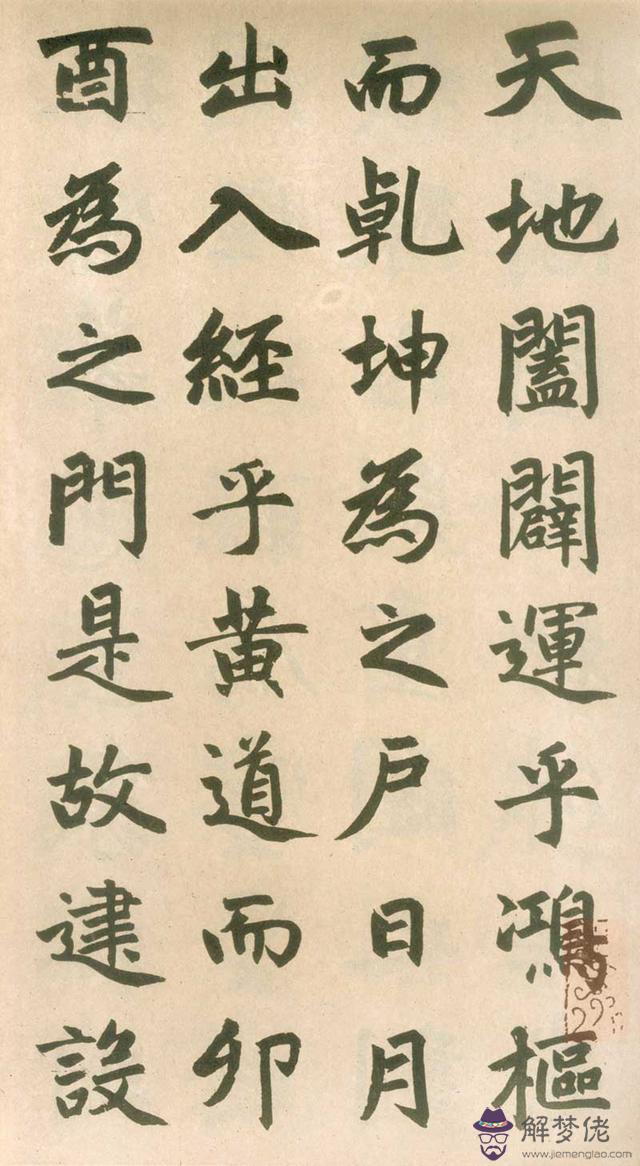 天地闔闢運乎鴻樞
而乹坤為之戶日月
出入經乎黃道而卯
酉為之門是故建設
解梦佬
www.jiemenglao.com